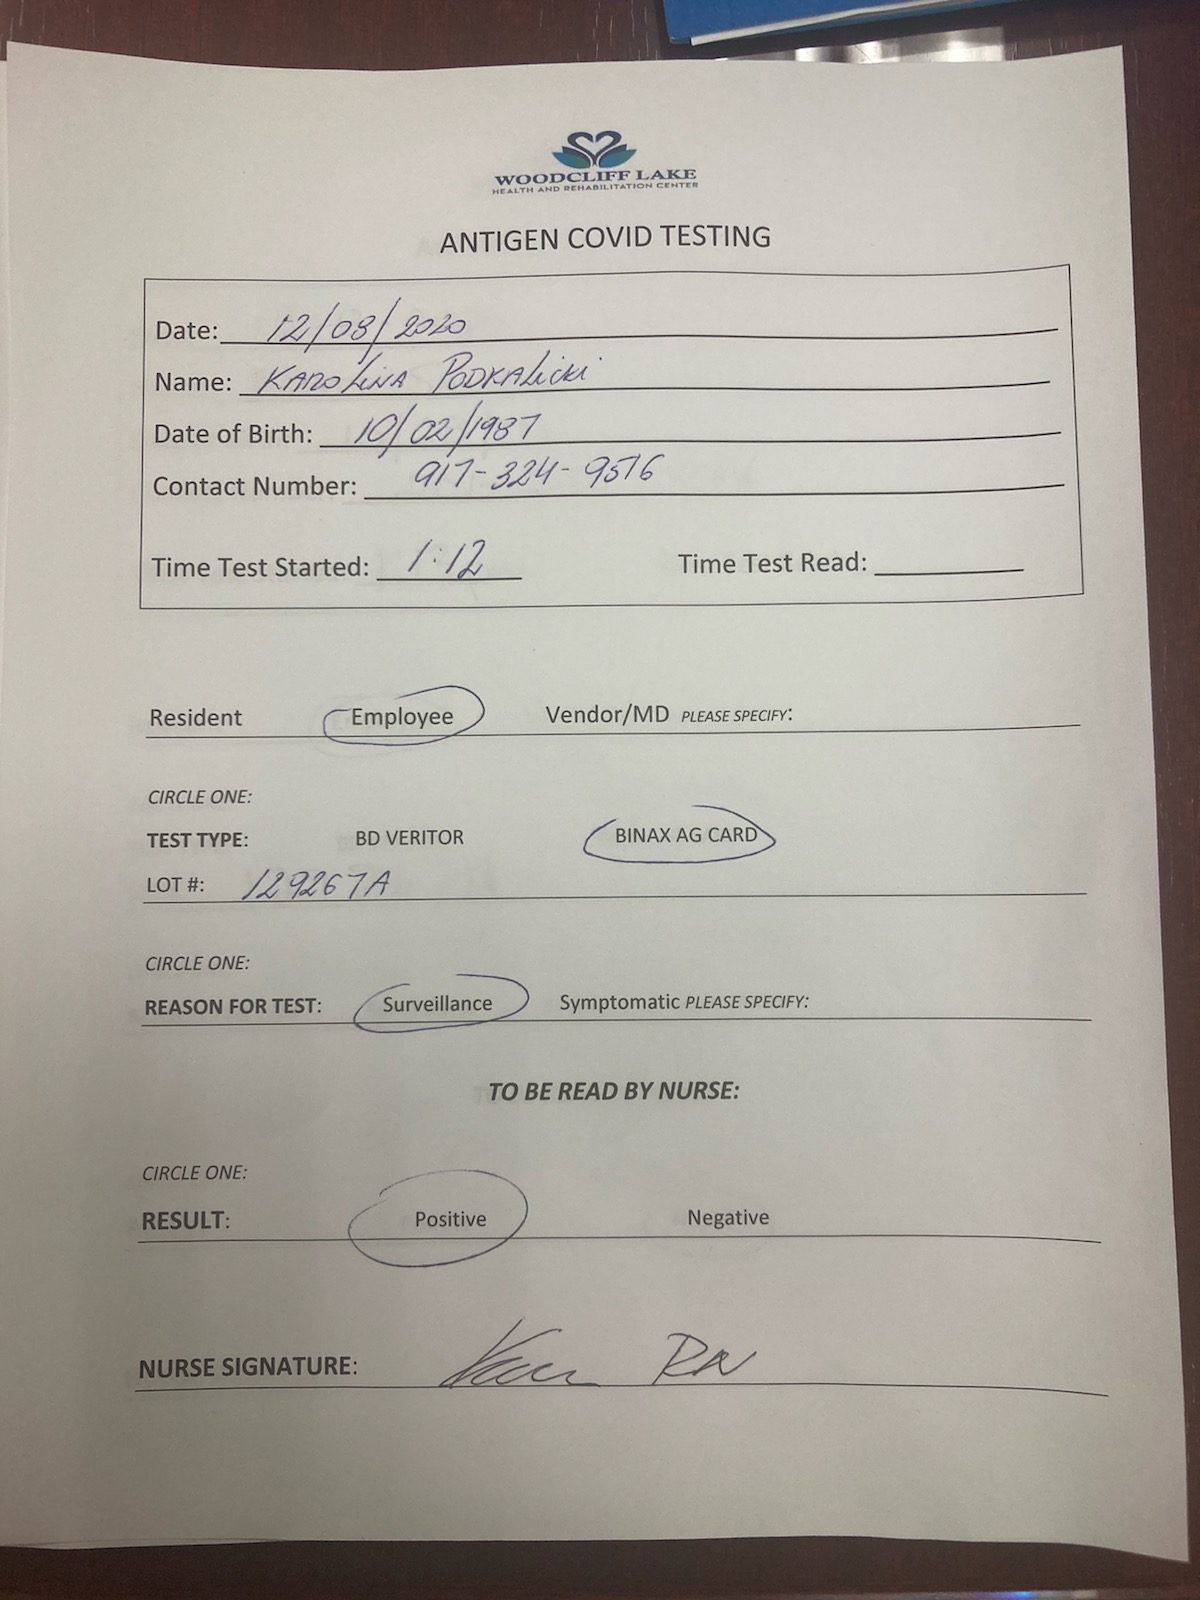 WOODCLIFF LAKE
HEALTH AND REHABILITATION CENTER
ANTIGEN COVID TESTING
Date: 12/08/2020
Name: KAROLINA PODKALICKI
Date of Birth: 10/02/1987
Contact Number: 917-324-9576
Time Test Started: 1:12 Time Test Read:
Resident Employee Vendor/MD PLEASE SPECIFY:
CIRCLE ONE:
TEST TYPE: BD VERITOR BINAX AG CARD
LOT #: 129267A
CIRCLE ONE:
REASON FOR TEST: Surveillance Symptomatic PLEASE SPECIFY:
TO BE READ BY NURSE:
CIRCLE ONE:
RESULT: Positive Negative
NURSE SIGNATURE: RN